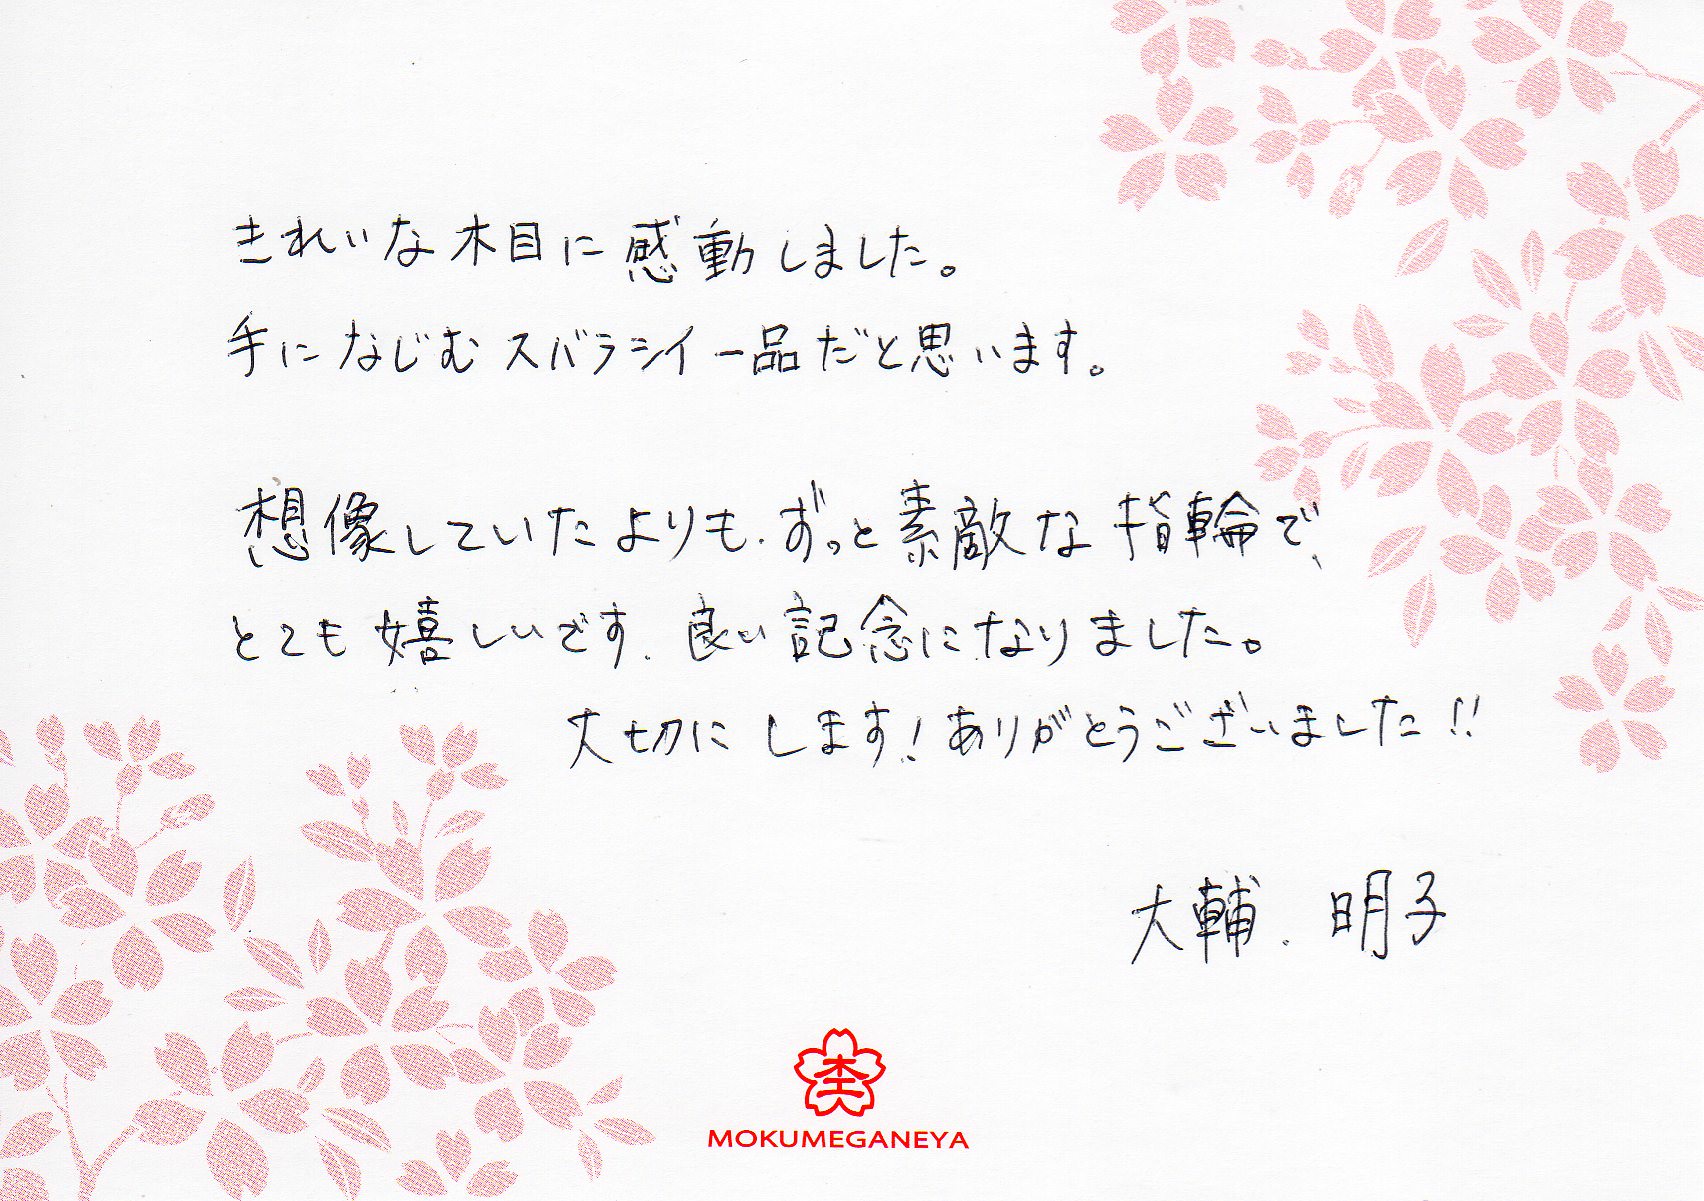 きれいな木目に感動しました。
手になじむスバラシイ一品だと思います。
想像していたよりも、ずっと素敵な指輪で、
とても嬉しいです。良い記念になりました。
大切にします！ありがとうございました!!
大輔、明子
杢
MOKUMEGANEYA